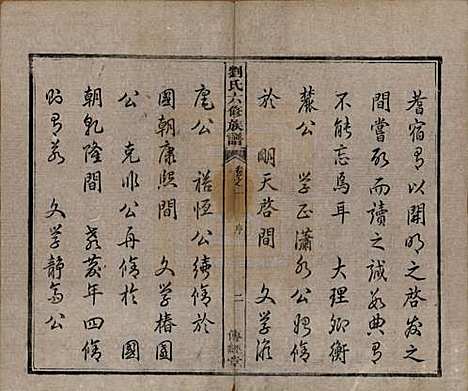 耆宿有以開明之啓發之
間嘗取而讀之誠數典有
不能忘焉耳 大理卿衡
麓公 學正瀟水公始修
於 明天啓間 文學
劉氏六修族譜
卷之一 序
二
傳經堂
庵公 裕恆公續修於
國朝康熙間 文學椿園
公 克非公再修於 國
朝乾隆間 嘉慶年四修
時有若 文學靜齋公